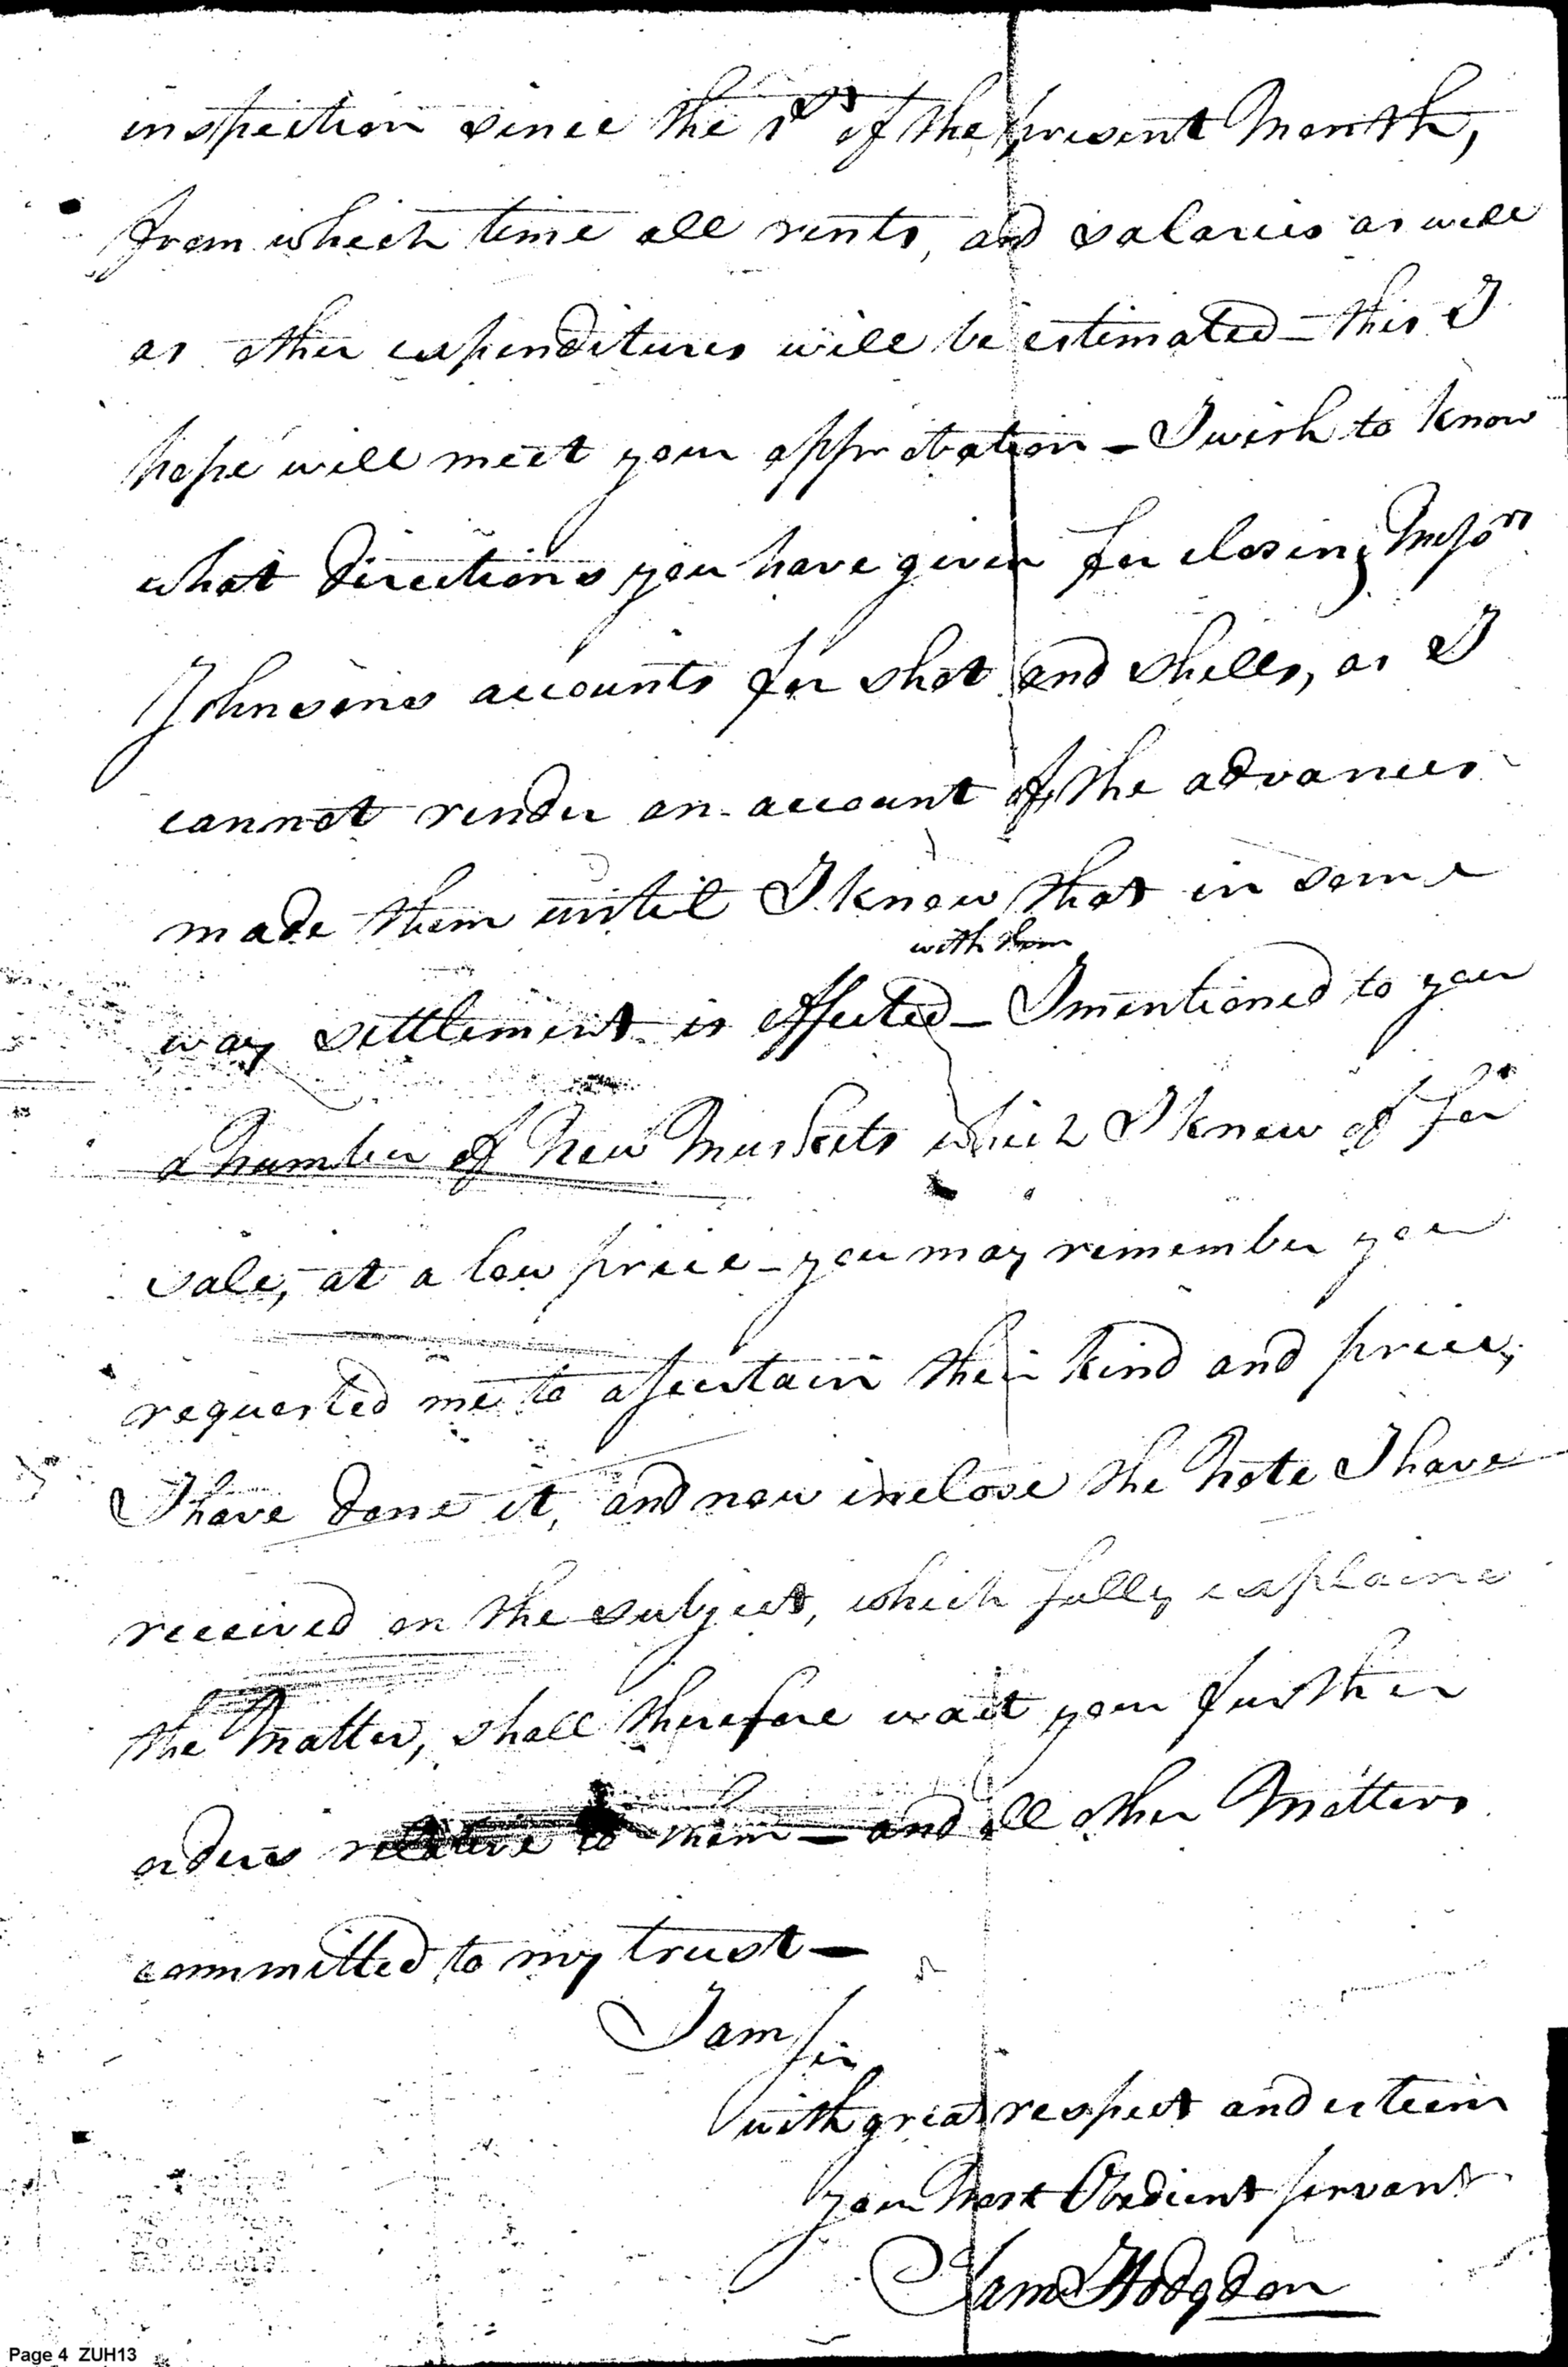 inspection since the 1st of the present Month,
from which time all rents, and salaries as well
as other expenditures will be estimated – this I
hope will meet your approbation – I wish to know
what directions you have given for closing Messrs
Johnsons accounts for shot and shells, as I
cannot render an account of the advances
made them until I know that in some
with them
way settlement is effected – I mentioned to you
a Number of New Muskets which I knew of for
sale, at a low price – you may remember you
requested me to ascertain their kind and price,
I have done it, and now inclose the Note I have
received on the subject, which fully explains
the Matter, shall therefore wait your further
orders relative to them – and all other Matters
committed to my trust –
I am Sir
with great respect and esteem
your Most Obedient servant
Saml Hodgdon
Page 4 ZUH13